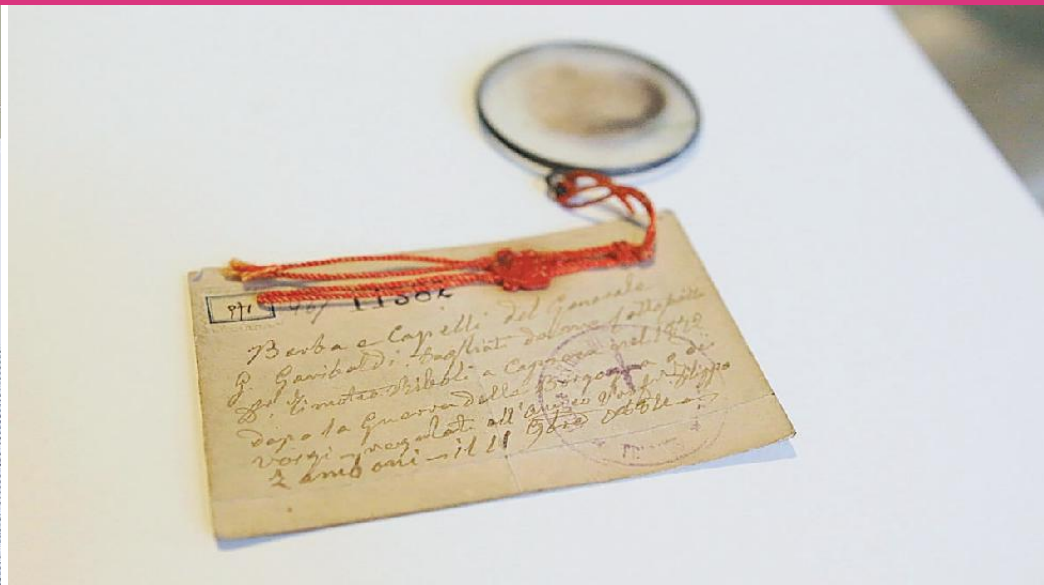 11562
Barba e Capelli del Generale
G. Garibaldi. tagliati da me sottoscritto
Dr. Timoteo Riboli a Caprera nel
dopo la Guerra della Borgogna e dei
Vosgi — regalati all'amico Prof. Filippo
Zamboni — il 11